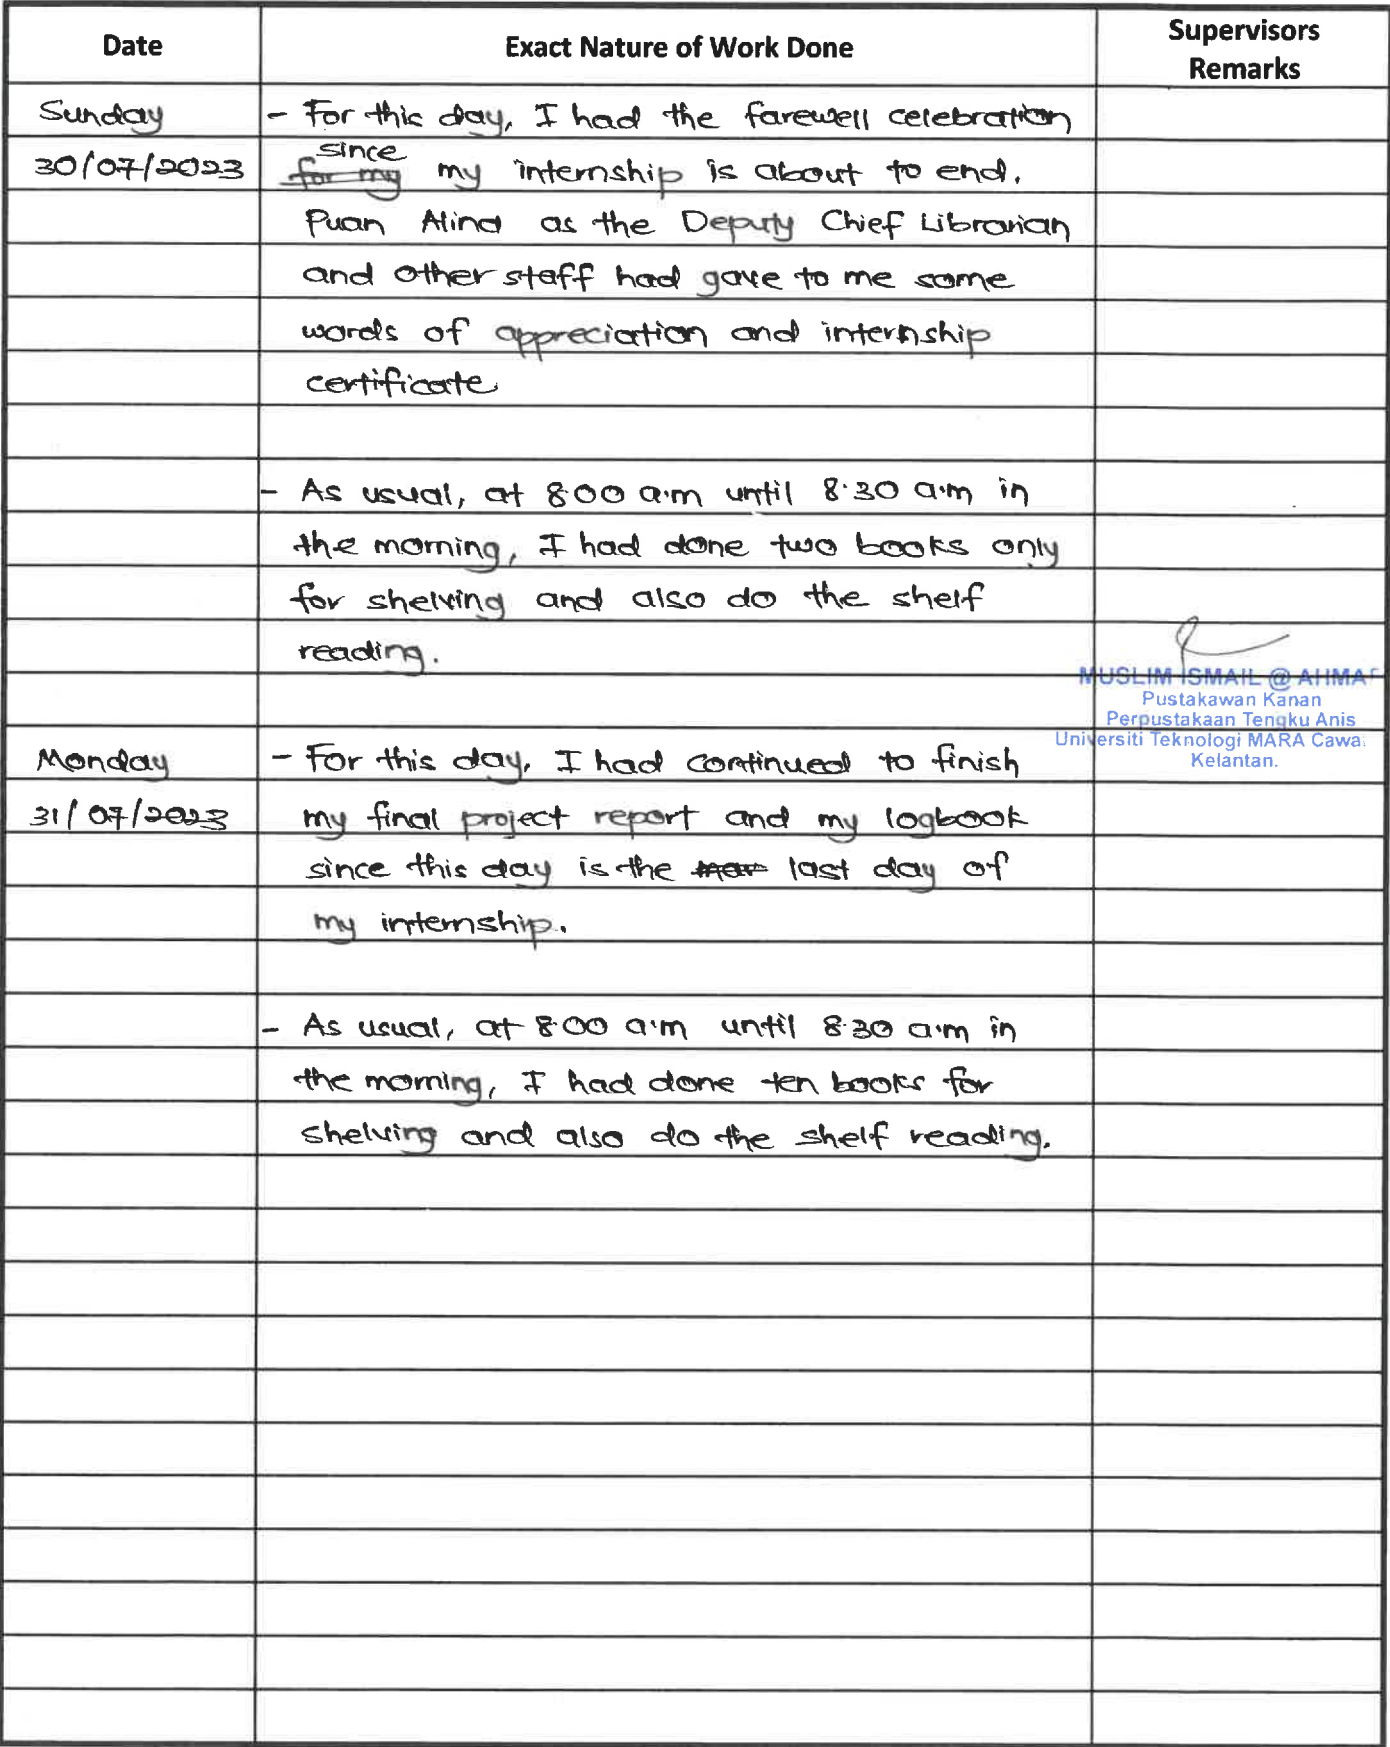 Date Exact Nature of Work Done Supervisors Remarks
Sunday - For this day, I had the farewell celebration
since
30/07/2023 for my my internship is about to end.
Puan Alina as the Deputy Chief Librarian
and other staff had gave to me some
words of appreciation and internship
certificate
- As usual, at 8.00 a.m until 8.30 a.m in
the morning, I had done two books only
for shelving and also do the shelf
reading.
MUSLIM ISMAIL @ AHMA
Pustakawan Kanan
Perpustakaan Tengku Anis
Universiti Teknologi MARA Cawa
Kelantan.
Monday - For this day, I had continued to finish
31/07/2023 my final project report and my logbook
since this day is the last day of
my internship.
- As usual, at 8.00 a.m until 8.30 a.m in
the morning, I had done ten books for
shelving and also do the shelf reading.